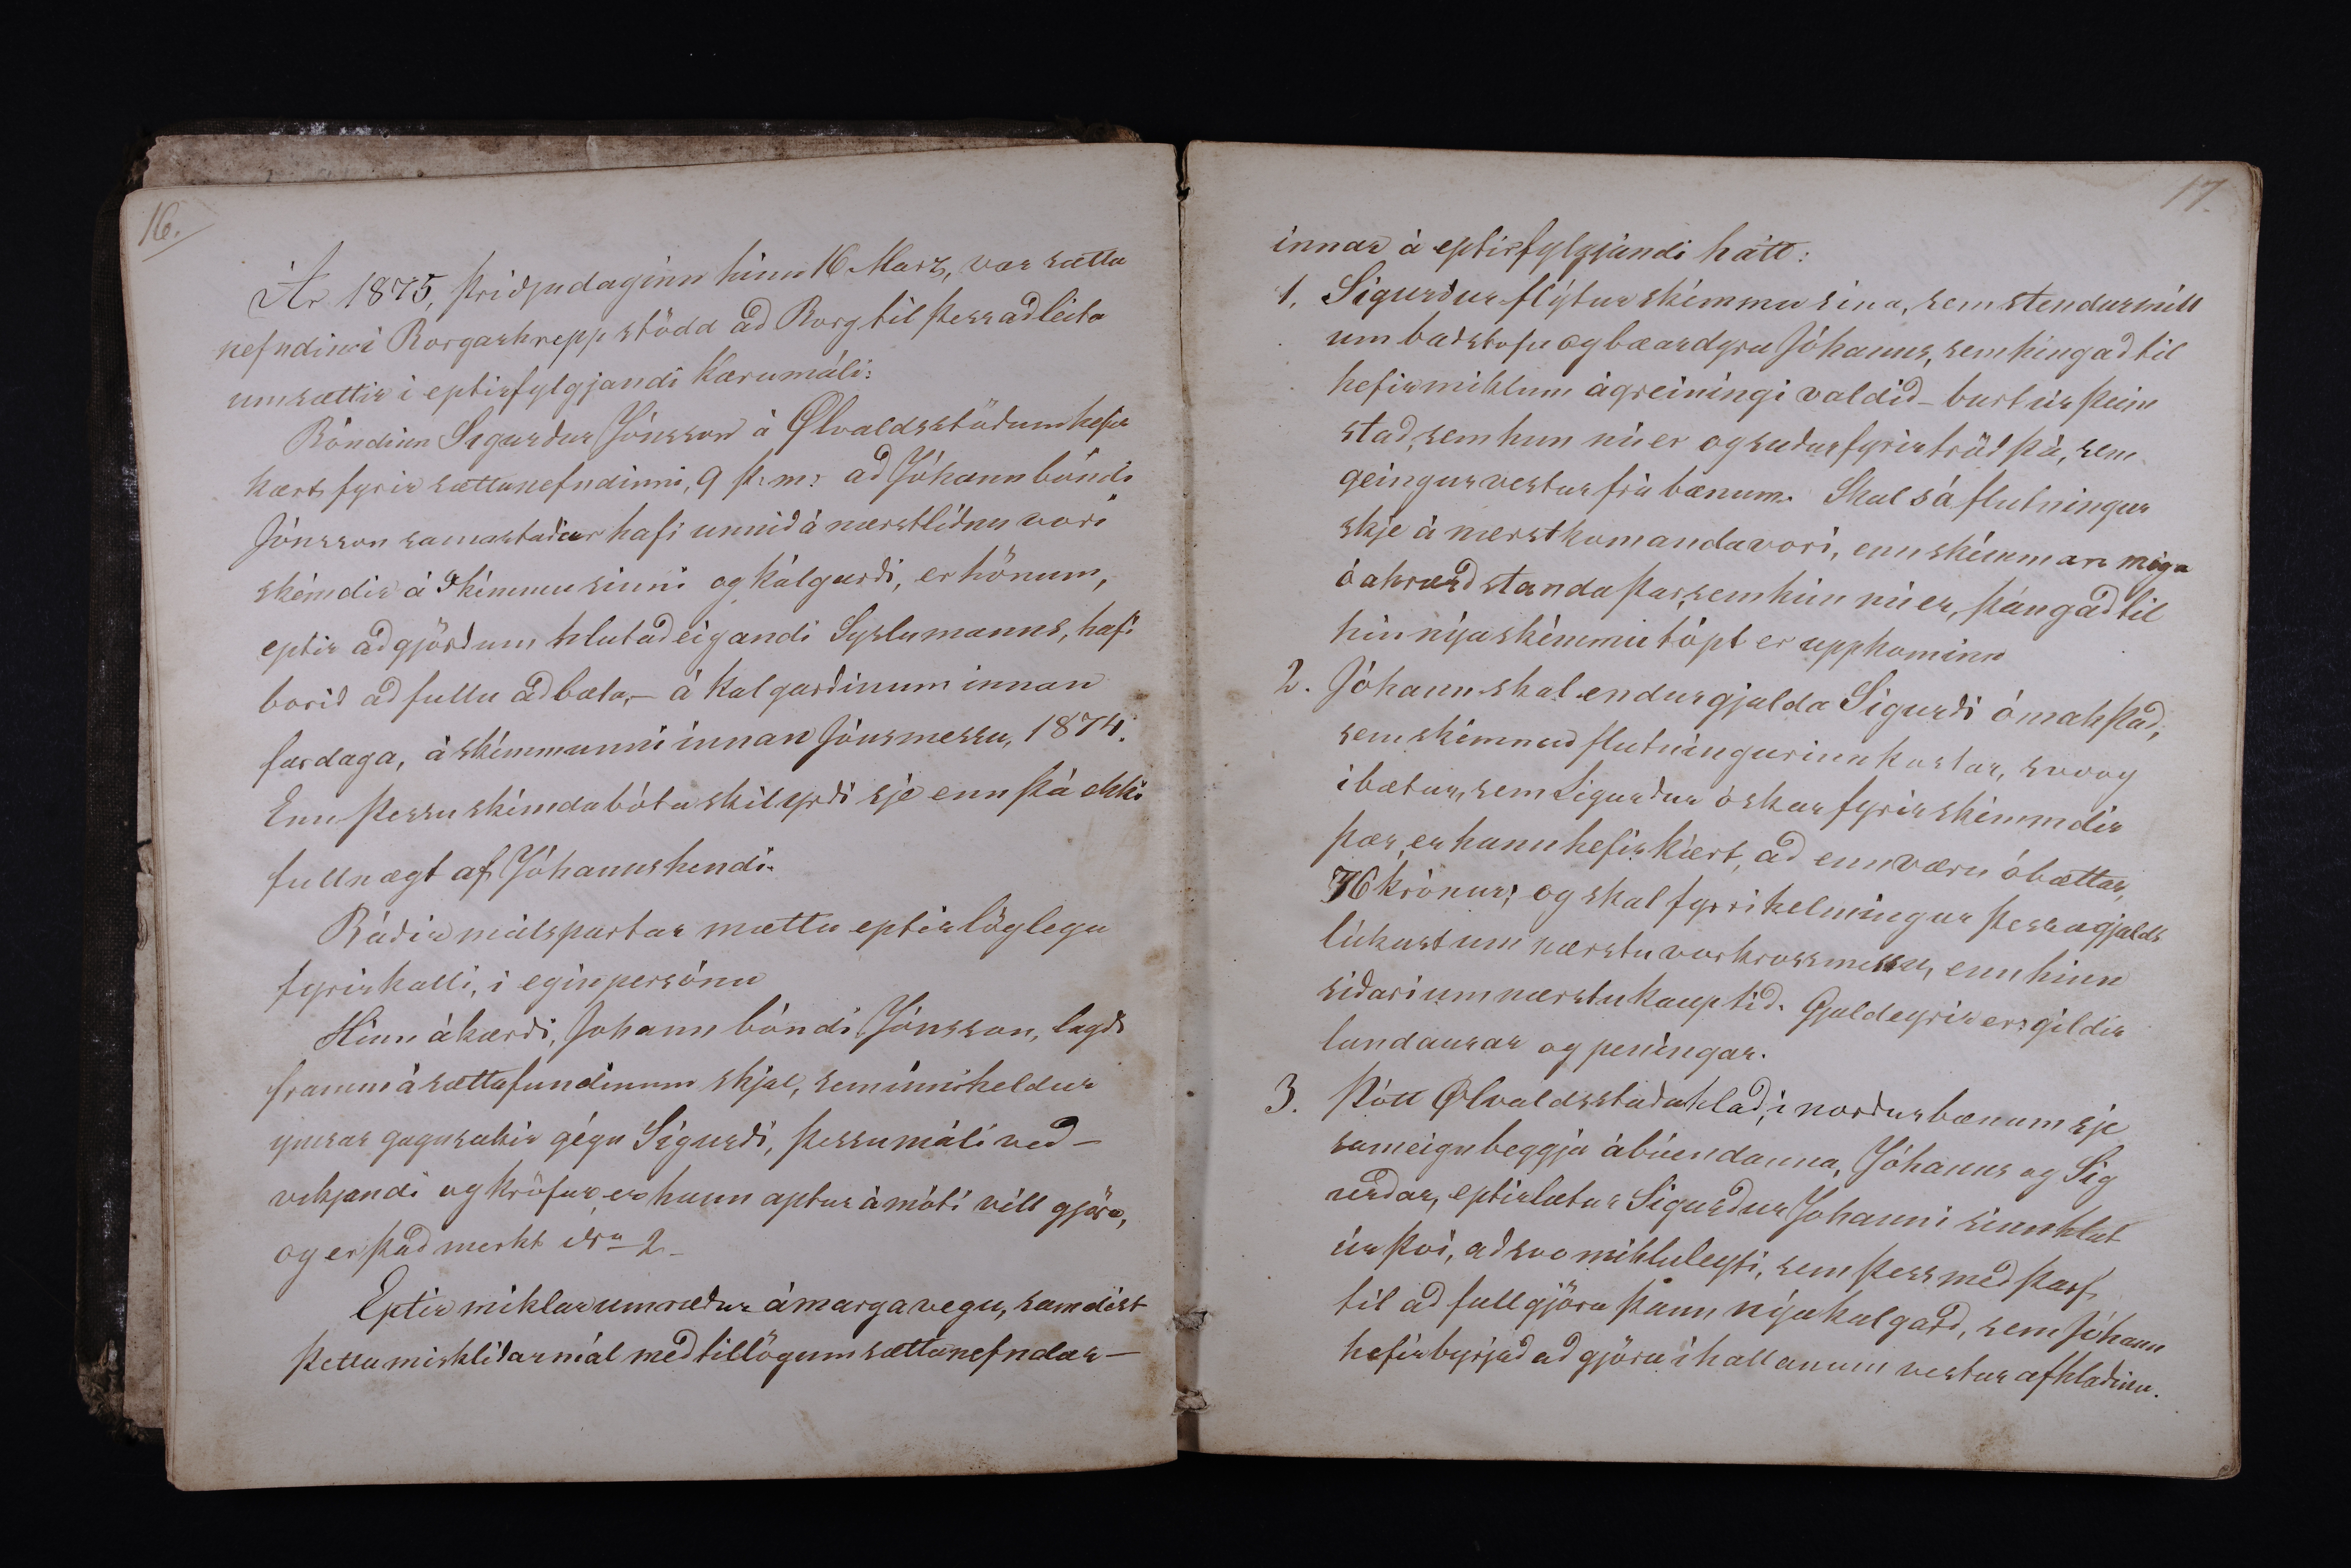 16.
Ár 1875, þriðjudaginn hinn 16 Marz, var sætta
nefndin í Borgarhrepp stödd að Borg til þess að leita
um sættir í eptirfylgjandi kærumáli:
Bóndinn Sigurður Jónsson á Ølvaldsstöðum hefir
kært fyrir sættanefndinni, 9 þ: m: að Jóhann bóndi
Jónsson samastaðar hafi unnið á næstliðnu vori
skémdir á Skémmu sinni og kálgarði, er hönum,
eptir aðgjörðum hlutaðeigandi Syslumanns, hafi
borið að fullu að bæta, – á kalgarðinum innan
fardaga, á skémmunni innan Jónsmessu, 1874.
Enn þessu skémdabóta skilyrði sje enn þá ekki
fullnægt af Jóhanns hendi.
Báðir málspartar mættu eptir löglegu
fyrirkalli, í egin persónu
Hinn ákærði, Johann bóndi Jónsson, lagði
framm á sættafundinum skjal, sem inniheldur
ymsar gagnsakir gégn Sigurði, þessu máli við–
víkjandi og kröfur, er hann aptur á móti vill gjöra,
og er það merkt No 2–
Eptir miklar umræður á marga vegu, samdist
þetta misklíðarmál með tillögum sættanefndar–
17.
innar á eptirfylgjandi hátt:
1. Sigurður flýtur skémmu sína, sem stendur mill
um baðstofu og bæardyra Jóhanns, sem hingað til
hefir miklum ágreiningi valdið – burt úr þeim
stað, sem hun nú er og suður fyrir tröð þá, sem
geingur vestur frá bænum. Skal sá flutningur
skje á næstkomanda vori, enn skémman má
óahrærð standa þar, sem hún nú er, þángað til
hin nýa skémmu tópt er uppkominn
2. Jóhann skal endurgjalda Sigurði ómak það,
sem skémmuflutningurinn kostar, svo og
í bætur, sem Sigurður óskar fyrir skémmdir
þær, er hann hefir kjært, að enn væru óbættar,
76 krónur; og skal fyrri helmingur þessa gjalds
lúkast um næstu vorkrossmessu, enn hinn
síðari um næstu kauptíð. Gjaldeyrir er: gildir
landaurar og peníngar.
3. Þótt Ølvaldsstaðahlað, í norðurbænum sje
sameign beggja ábúendanna, Jóhanns og Sig
urðar, eptirlætur Sigurður Johanni sinn hlut
úr því, að svo miklu leyti, sem þess með þarf,
til að fullgjöra þann nýa kalgarð, sem Jóhann
hefir byrjað að gjöra í hallanum vestur af hlaðinu.